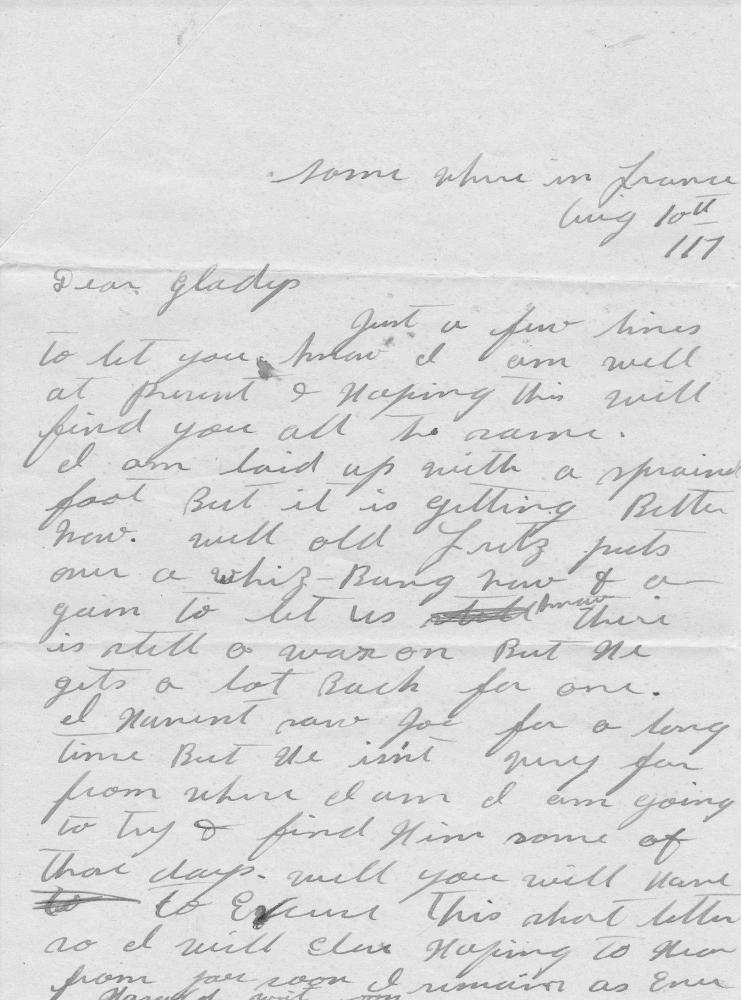 some where in france
Aug 10th
117
Dear Gladys
Just a few lines
to let you know I am well
at Present & Hoping this will
find you all the same.
I am laid up with a spraind
foot But it is getting Better
now. well old Fritz puts
over a whiz-Bang now & a
gain to let us know there
is still a war on But He
gets a lot Back for one.
I Havent saw Joe for a long
time But He isn't very far
from where I am I am going
to try & find Him some of
those days. well you will Have
to Excuse this short letter
so I will close Hoping to Hear
from you soon I remain as Ever